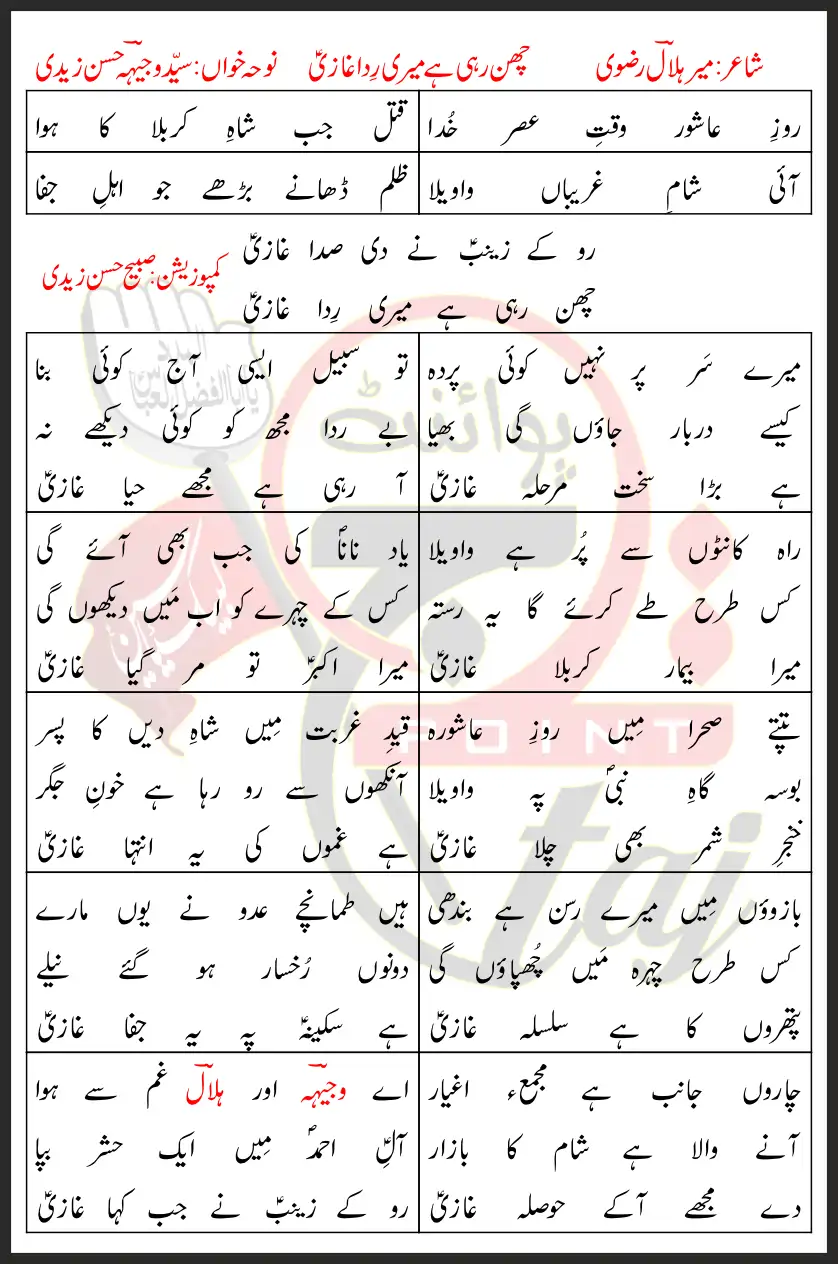 شاعر: میر ہلالؔ رضوی چھن رہی ہے میری رِدا غازیؑ نوحہ خواں: سیّد وجیہہؔ حسن زیدی
روزِ عاشور وقتِ عصر خُدا قتل جب شاہِ کربلا کا ہوا
آئی شامِ غریباں واویلا ظلم ڈھانے بڑھے جو اہلِ جفا
رو کے زینبؑ نے دی صدا غازیؑ
کمپوزیشن: صبیح حسن زیدی
چھن رہی ہے میری رِدا غازیؑ
میرے سَر پر نہیں کوئی پردہ
کیسے دربار جاؤں گی بھیا
ہے بڑا سخت مرحلہ غازیؑ
تو سبیل ایسی آج کوئی بنا
بے ردا مجھ کو کوئی دیکھے نہ
آ رہی ہے مجھے حیا غازیؑ
راہ کانٹوں سے پُر ہے واویلا
کس طرح طے کرئے گا یہ رستہ
میرا بیمار کربلا غازیؑ
یاد ناناؐ کی جب بھی آئے گی
کس کے چہرے کو اب مَیں دیکھوں گی
میرا اکبرؑ تو مر گیا غازیؑ
تپتے صحرا مِیں روزِ عاشورہ
بوسہ گاہِ نبیؐ پہ واویلا
خنجرِ شمر بھی چلا غازیؑ
قیدِ غربت مِیں شاہِ دیں کا پسر
آنکھوں سے رو رہا ہے خونِ جگر
ہے غموں کی یہ انتہا غازیؑ
بازوؤں مِیں میرے رسن ہے بندھی
کس طرح چہرہ مَیں چُھپاؤں گی
پتھروں کا ہے سلسلہ غازیؑ
ہیں طمانچے عدو نے یوں مارے
دونوں رُخسار ہو گئے نیلے
ہے سکینہؑ پہ یہ جفا غازیؑ
چاروں جانب ہے مجمعء اغیار
آنے والا ہے شام کا بازار
دے مجھے آکے حوصلہ غازیؑ
اے وجیہہؔ اور ہلالؔ غم سے ہوا
آلِؑ احمدؐ مِیں ایک حشر بپا
رو کے زینبؑ نے جب کہا غازیؑ
پوائنٹ
تاج
POINT
taj
لبیک یا حسینؑ
المدد
یا ابا الفضل العباس